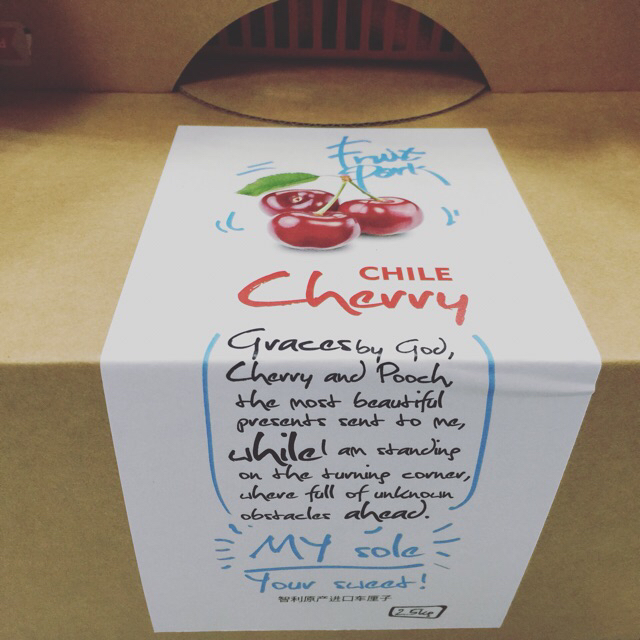 Fruit
Park
CHILE
Cherry
Graces by God,
Cherry and Pooch
the most beautiful
presents sent to me,
while I am standing
on the turning corner,
where full of unknown
obstacles ahead.
MY sole
Your sweet!
智利原产进口车厘子
2.5kg